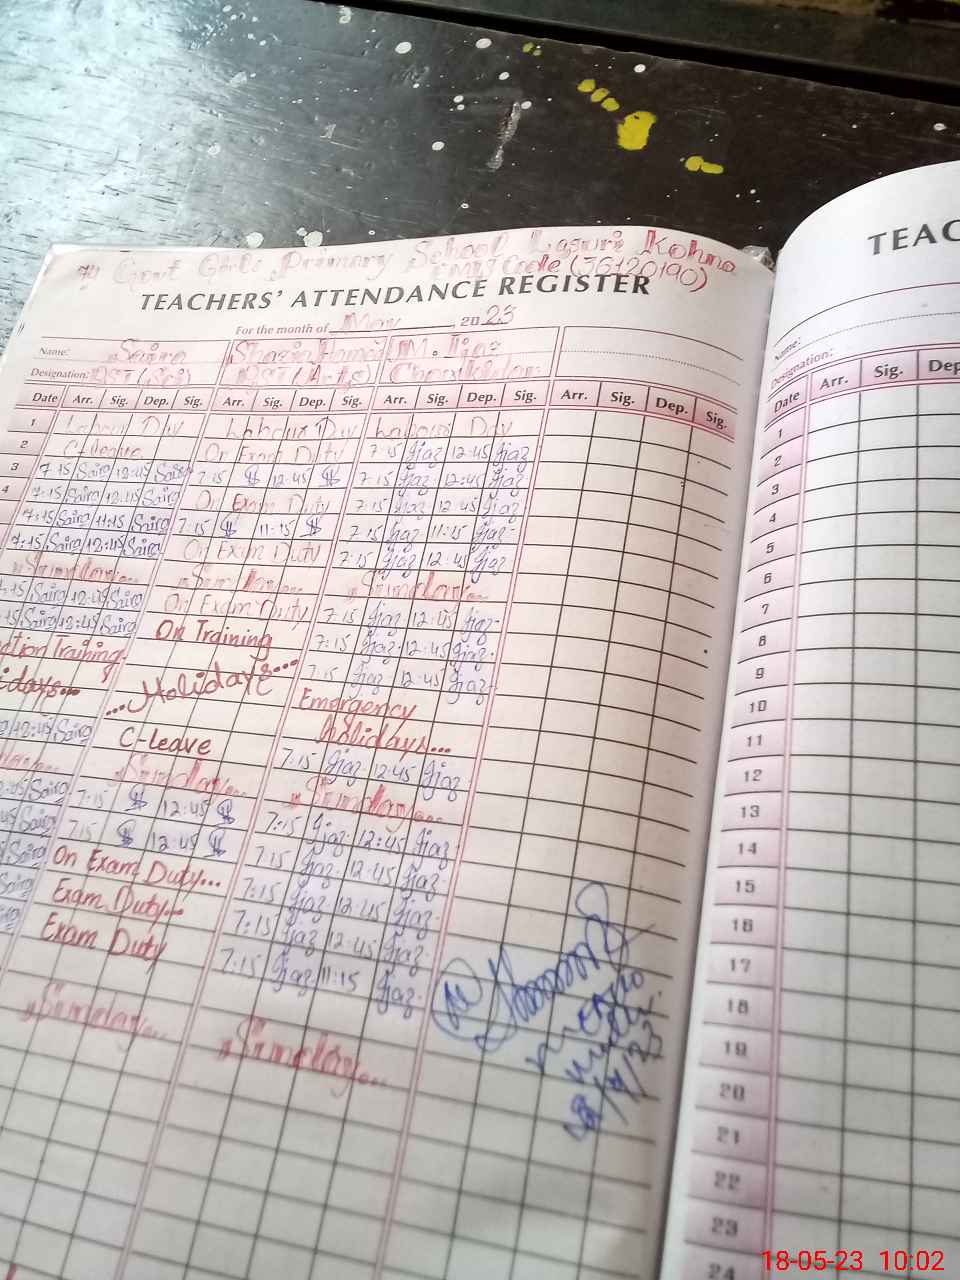 Govt Girls Primary School Lasuri Kohna
EMIS Code (36120190)
TEACHERS' ATTENDANCE REGISTER
For the month of May 2023
Name: Saira Shazia Hameed M. Ijaz
Designation: PST (Sci) PST (Arts) Chowkidar
Date Arr. Sig. Dep. Sig. Arr. Sig. Dep. Sig. Arr. Sig. Dep. Sig. Arr. Sig. Dep. Sig.
1 Labour Day Labour Day Labour Day
2 C-leave On Exam Duty 7:15 Ijaz 12:45 Ijaz
3 7:15 Saira 12:45 Saira 7:15 12:45 7:15 Ijaz 12:45 Ijaz
4 7:15 Saira 12:45 Saira On Exam Duty 7:15 Ijaz 12:45 Ijaz
7:15 Saira 11:15 Saira 7:15 11:15 7:15 Ijaz 11:45 Ijaz
7:15 Saira 12:45 Saira On Exam Duty 7:15 Ijaz 12:45 Ijaz
Sunday... Sunday... Sunday...
7:15 Saira 12:45 Saira On Exam Duty 7:15 Ijaz 12:45 Ijaz
:15 Saira 12:45 Saira On Training 7:15 Ijaz 12:45 Ijaz
ction Training 7:15 Ijaz 12:45 Ijaz
idays... ...Holidays... Emergency
Holidays...
12:45 Saira C-leave 7:15 Ijaz 12:45 Ijaz
Sunday... Sunday...
2:45 Saira 7:15 12:45 7:15 Ijaz 12:45 Ijaz
:45 Saira 7:15 12:45 7:15 Ijaz 12:45 Ijaz
Saira On Exam Duty... 7:15 Ijaz 12:45 Ijaz
Saira Exam Duty... 7:15 Ijaz 12:45 Ijaz
Exam Duty 7:15 Ijaz 11:15 Ijaz
Sunday... Sunday...
TEAC
Name:
Designation:
Date Arr. Sig. Dep
1
2
3
4
5
6
7
8
9
10
11
12
13
14
15
16
17
18
19
20
21
22
23
24
18-05-23 10:02